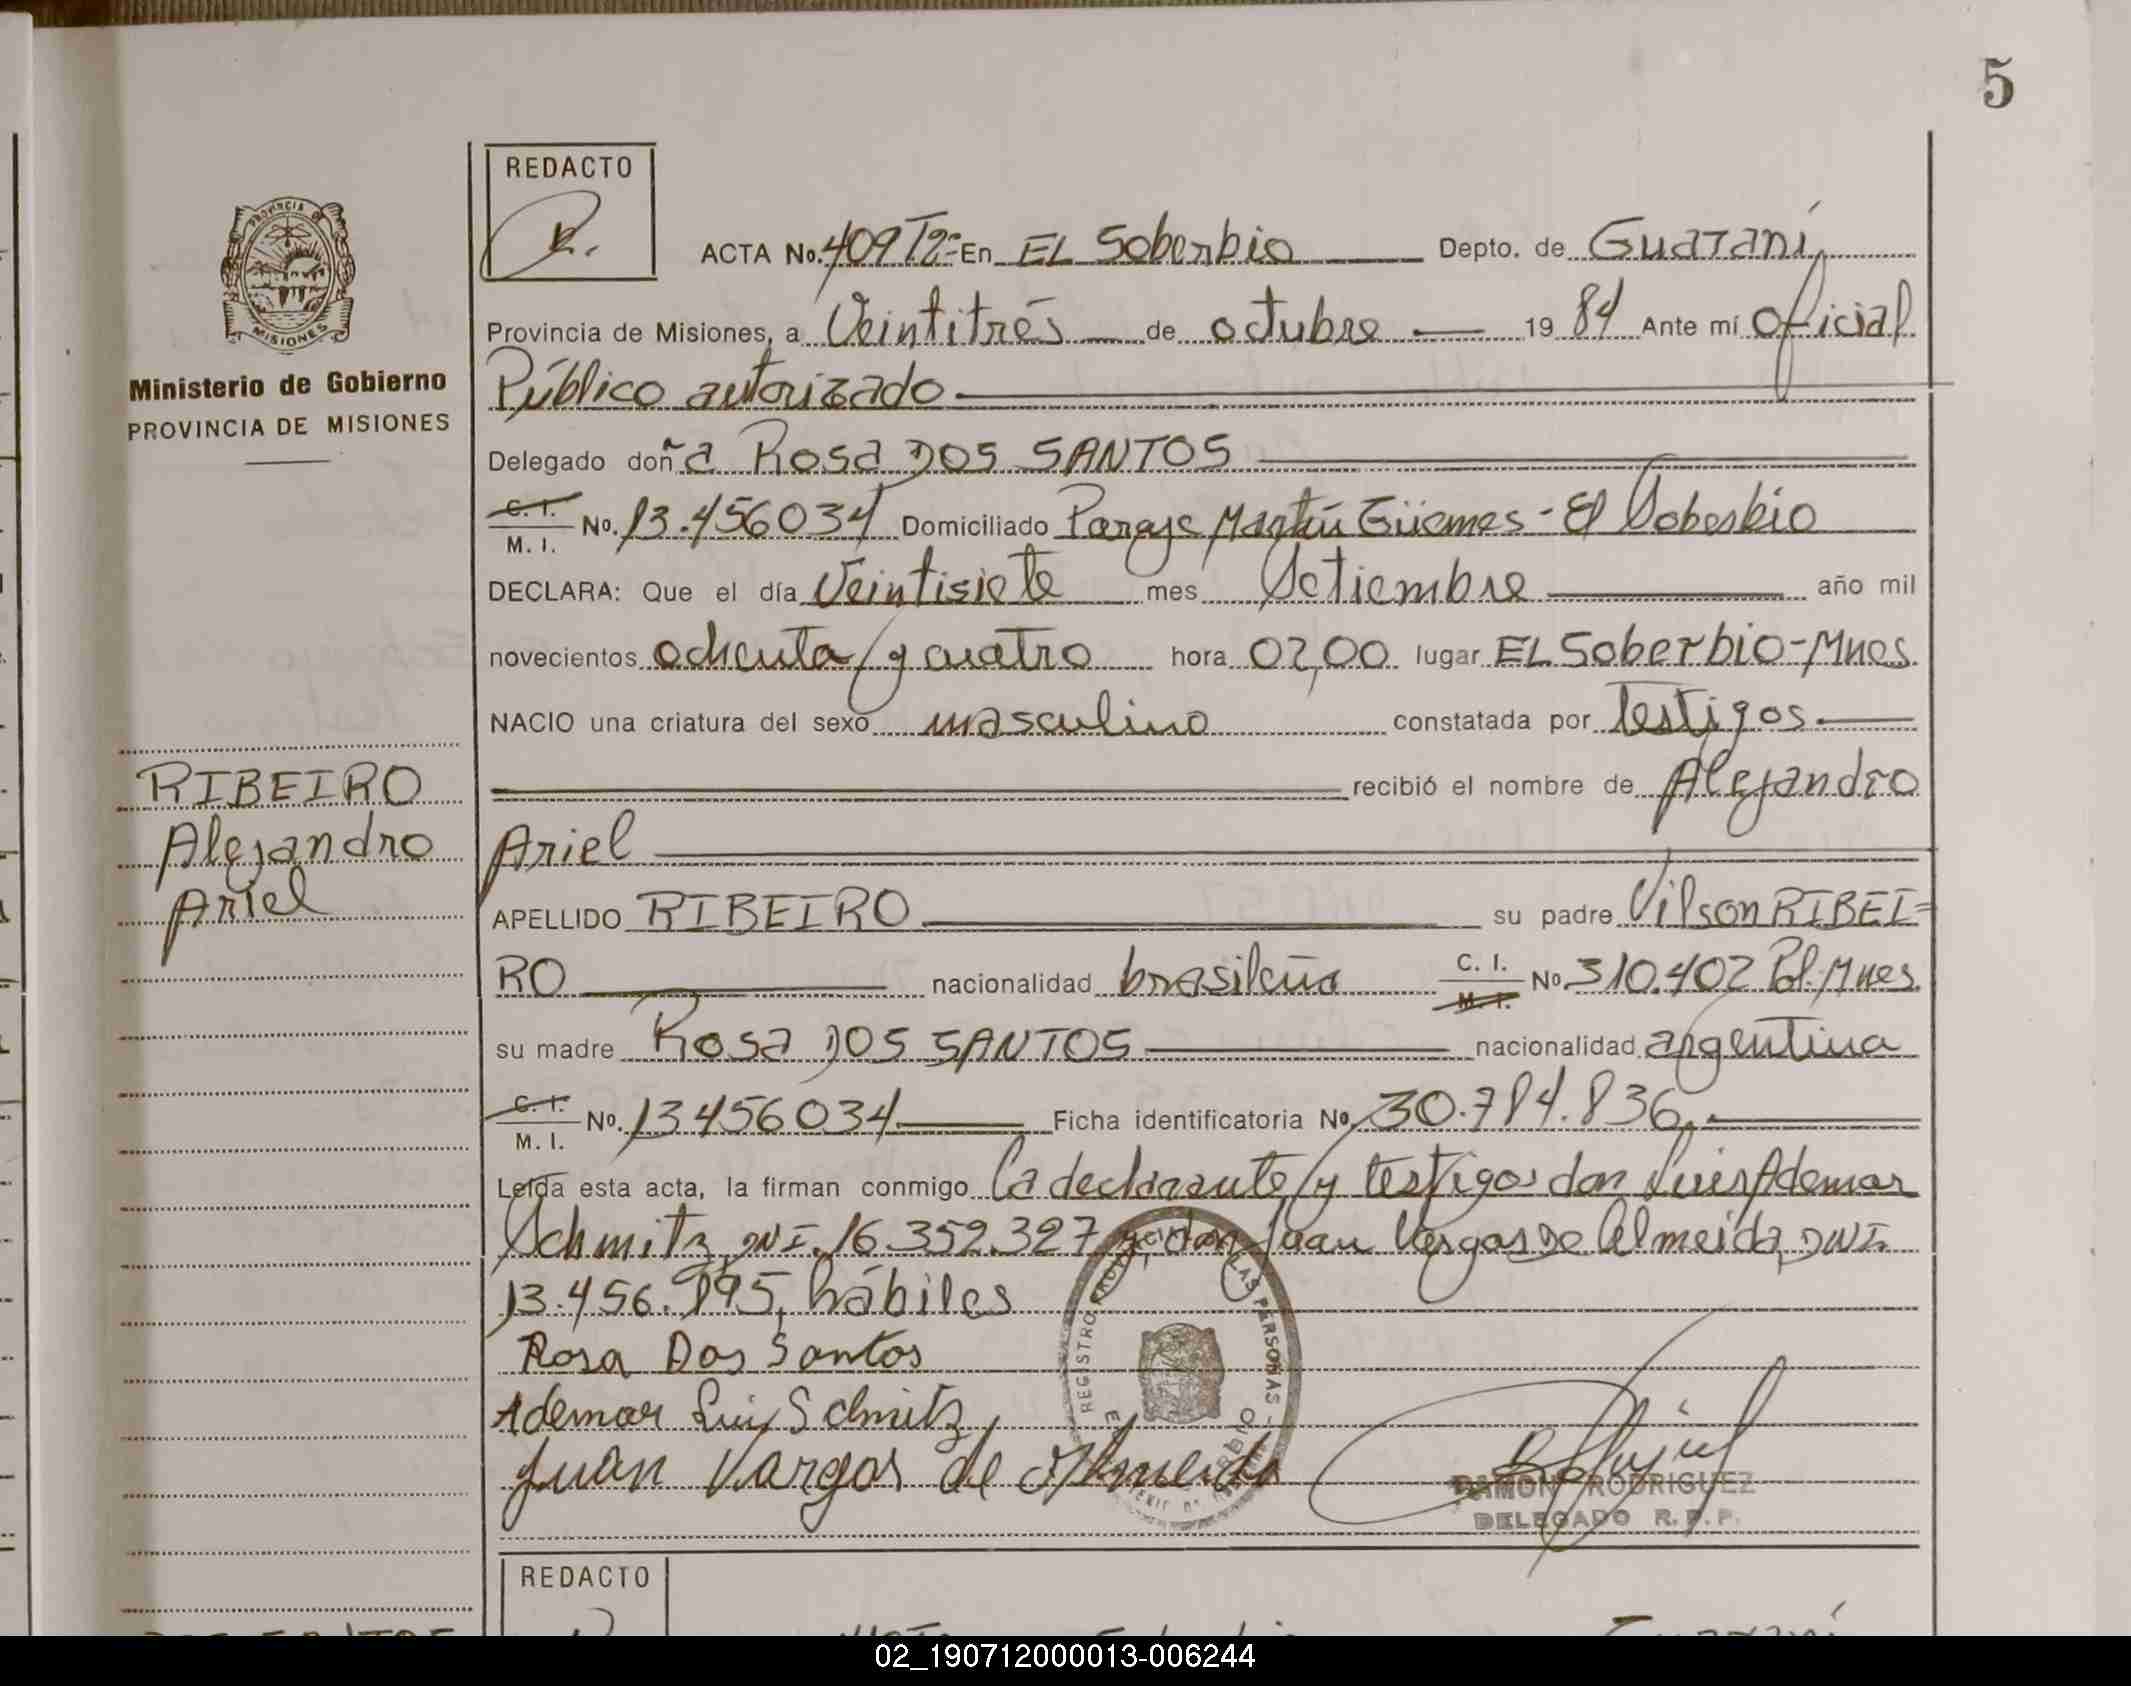 5
REDACTO
ACTA No. 409 Tº 2º En EL Soberbio Depto. de Guaraní
Provincia de Misiones, a Veintitrés de octubre 19 84 Ante mí Oficial
Público autorizado
Delegado doña Rosa DOS SANTOS
C. I. M. I. No. 13.456034 Domiciliado Paraje Martín Güemes - El Soberbio
DECLARA: Que el día Veintisiete mes Setiembre año mil
novecientos ochenta y cuatro hora 02,00 lugar EL Soberbio-Mnes.
NACIO una criatura del sexo masculino constatada por Testigos
recibió el nombre de Alejandro
Ariel
APELLIDO RIBEIRO su padre Vilson RIBEI=
RO nacionalidad brasileña C. I. M. I. No. 310.402 Pol. Mnes.
su madre Rosa DOS SANTOS nacionalidad argentina
C. I. M. I. No. 13456034 Ficha identificatoria No. 30.784.836.
Leída esta acta, la firman conmigo la declarante y testigos don Luis Ademar
Schmitz, DNI. 16.352.327 y don Juan Vargas De Almeida, DNI.
13.456.895, hábiles
Rosa Dos Santos
Ademar Luis Schmitz
Juan Vargas de Almeida
REGISTRO PROVINCIAL DE LAS PERSONAS
RAMON RODRIGUEZ
DELEGADO R. P. P.
PROVINCIA DE
MISIONES
Ministerio de Gobierno
PROVINCIA DE MISIONES
RIBEIRO
Alejandro
Ariel
REDACTO
02_190712000013-006244